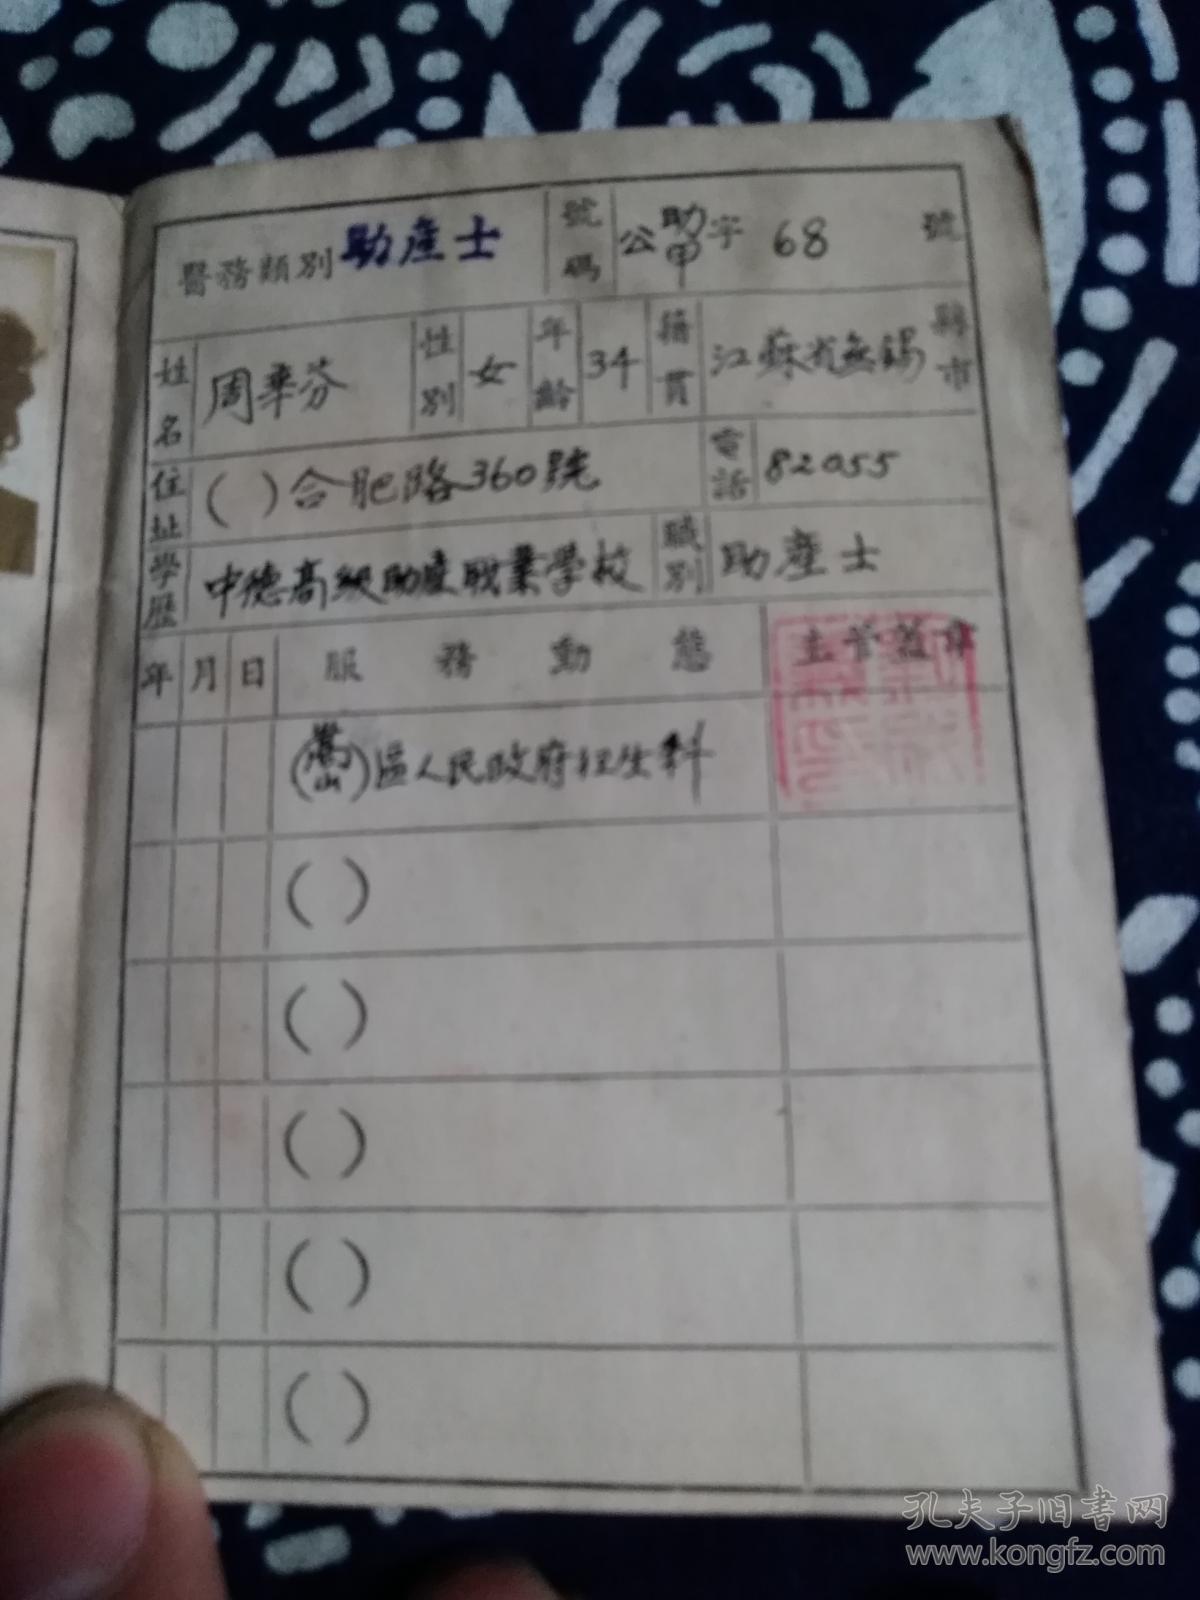 醫務類別 助產士 號碼 公助甲字 68 號
姓名 周華芬 性別 女 年齡 34 籍貫 江蘇省無錫 縣市
住址 ( ) 合肥路360號 電話 82055
學歷 中德高級助產職業學校 職別 助產士
年 月 日 服務動態 主管蓋章
(嵩山)區人民政府衛生科
( )
( )
( )
( )
( )
孔夫子旧书网
www.kongfz.com